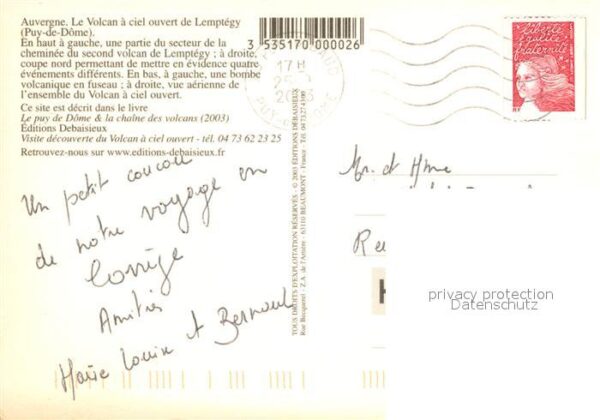 Auvergne. Le Volcan à ciel ouvert de Lemptégy
(Puy-de-Dôme).
En haut à gauche, une partie du secteur de la
cheminée du second volcan de Lemptégy ; à droite,
coupe nord permettant de mettre en évidence quatre
événements différents. En bas, à gauche, une bombe
volcanique en fuseau ; à droite, vue aérienne de
l'ensemble du Volcan à ciel ouvert.
Ce site est décrit dans le livre
Le puy de Dôme & la chaîne des volcans (2003)
Éditions Debaisieux
Visite découverte du Volcan à ciel ouvert - tél. 04 73 62 23 25
Retrouvez-nous sur www.editions-debaisieux.fr
3 535170 000026
Un petit coucou
de notre voyage en
Corrèze
Amitiés
Marie Louise et Bernard
TOUS DROITS D'EXPLOITATION RÉSERVÉS - © 2003 ÉDITIONS DEBAISIEUX
Rue Becquerel - Z.A. de l'Artière - 63110 BEAUMONT - France - Tél. 04 73 27 43 00
17 H
2003
PUY DE DOME
liberté
égalité
fraternité
RF
Mr et Mme
privacy protection
Datenschutz